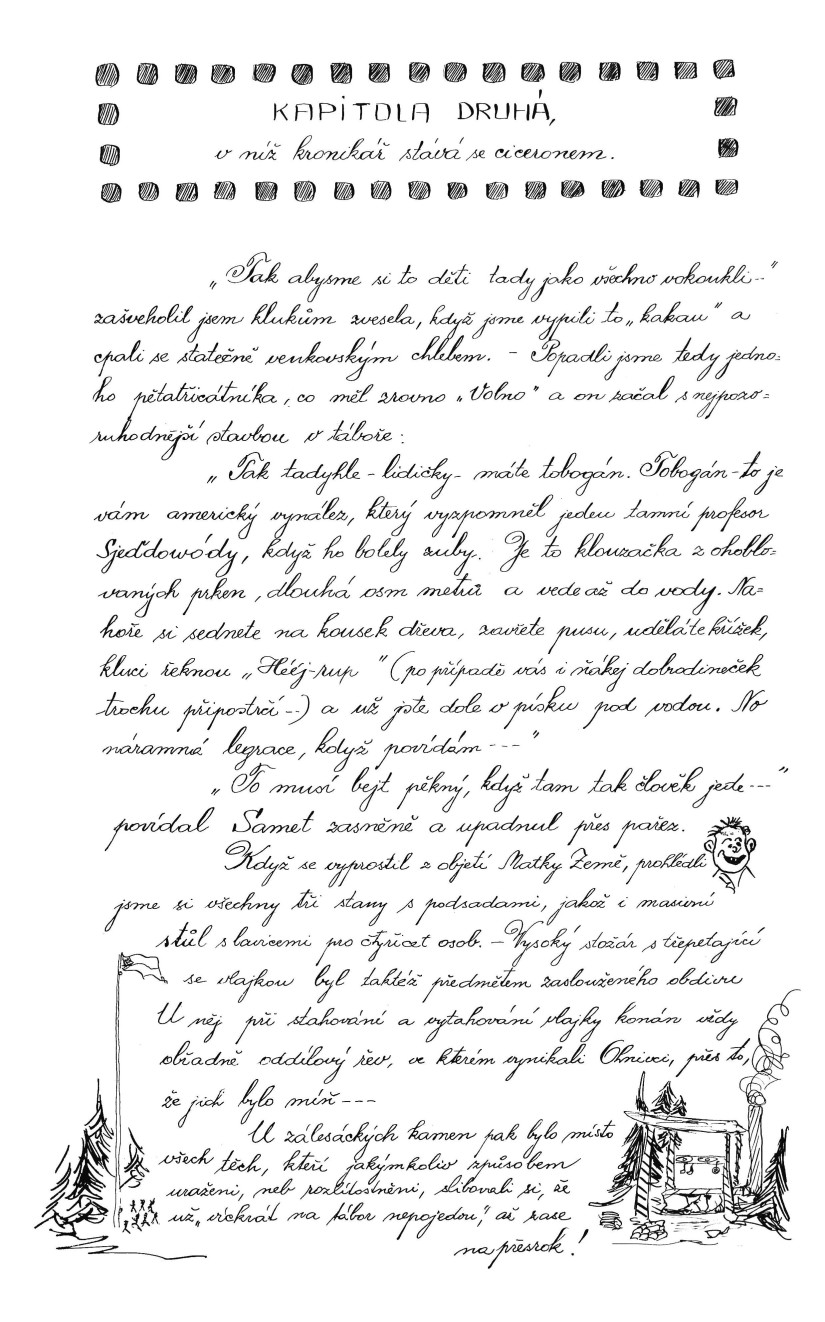 KAPITOLA DRUHÁ,
v níž kronikář stává se ciceronem.
„Tak abysme si to děti tady jako všechno vokoukli--"
zašveholil jsem klukům zvesela, když jsme vypili to „kakau" a
cpali se statečně venkovským chlebem. - Popadli jsme tedy jedno=
ho pětatřicátníka, co měl zrovno „Volno" a on začal s nejpozo=
ruhodnější stavbou v táboře:
„Tak tadyhle - lidičky - máte tobogán. Tobogán - to je
vám americký vynález, který vyzpomněl jeden tamní profesor
Sjeďdowódy, když ho bolely zuby. Je to klouzačka z ohoblo=
vaných prken, dlouhá osm metrů a vede až do vody. Na=
hoře si sednete na kousek dřeva, zavřete pusu, uděláte křížek,
kluci řeknou „Hééj-rup" (po případě vás i ňákej dobrodineček
trochu připostrčí--) a už jste dole v písku pod vodou. No
náramná legrace, když povídám---"
„To musí bejt pěkný, když tam tak člověk jede---"
povídal Samet zasněně a upadnul přes pařez.
Když se vyprostil z objetí Matky Země, prohlédli
jsme si všechny tři stany s podsadami, jakož i masivní
stůl s lavicemi pro čtyřicet osob. - Vysoký stožár s třepetající
se vlajkou byl taktéž předmětem zaslouženého obdivu
U něj při stahování a vytahování vlajky konán vždy
obřadně oddílový řev, ve kterém vynikali Ohnivci, přes to,
že jich bylo míň---
U zálesáckých kamen pak bylo místo
všech těch, kteří jakýmkoliv způsobem
uraženi, neb rozlítostněni, slibovali si, že
už „víckrát na tábor nepojedou", až zase
napřesrok!